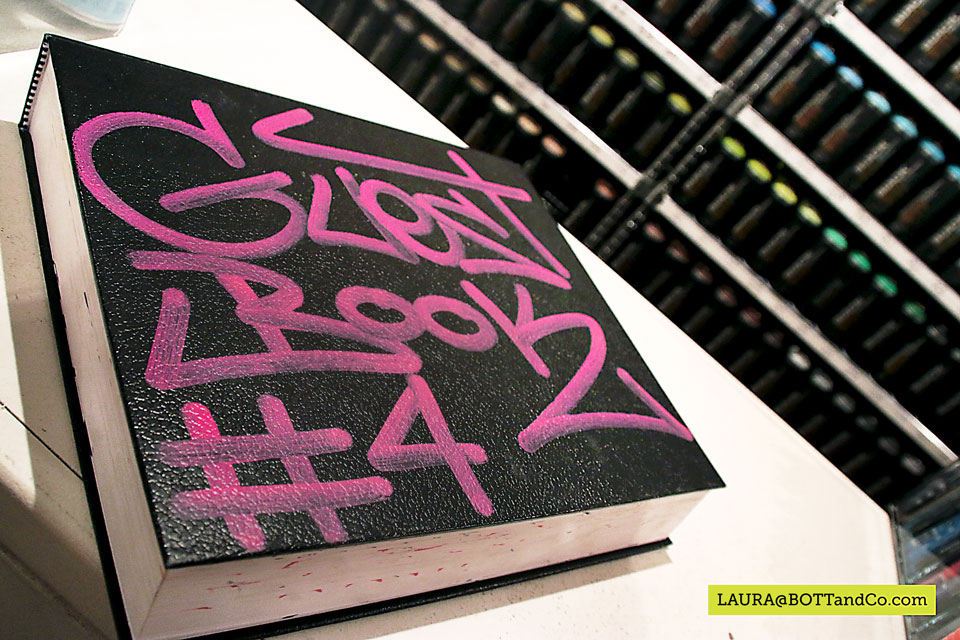 GUEST
BOOK
#4
LAURA@BOTTandCo.com